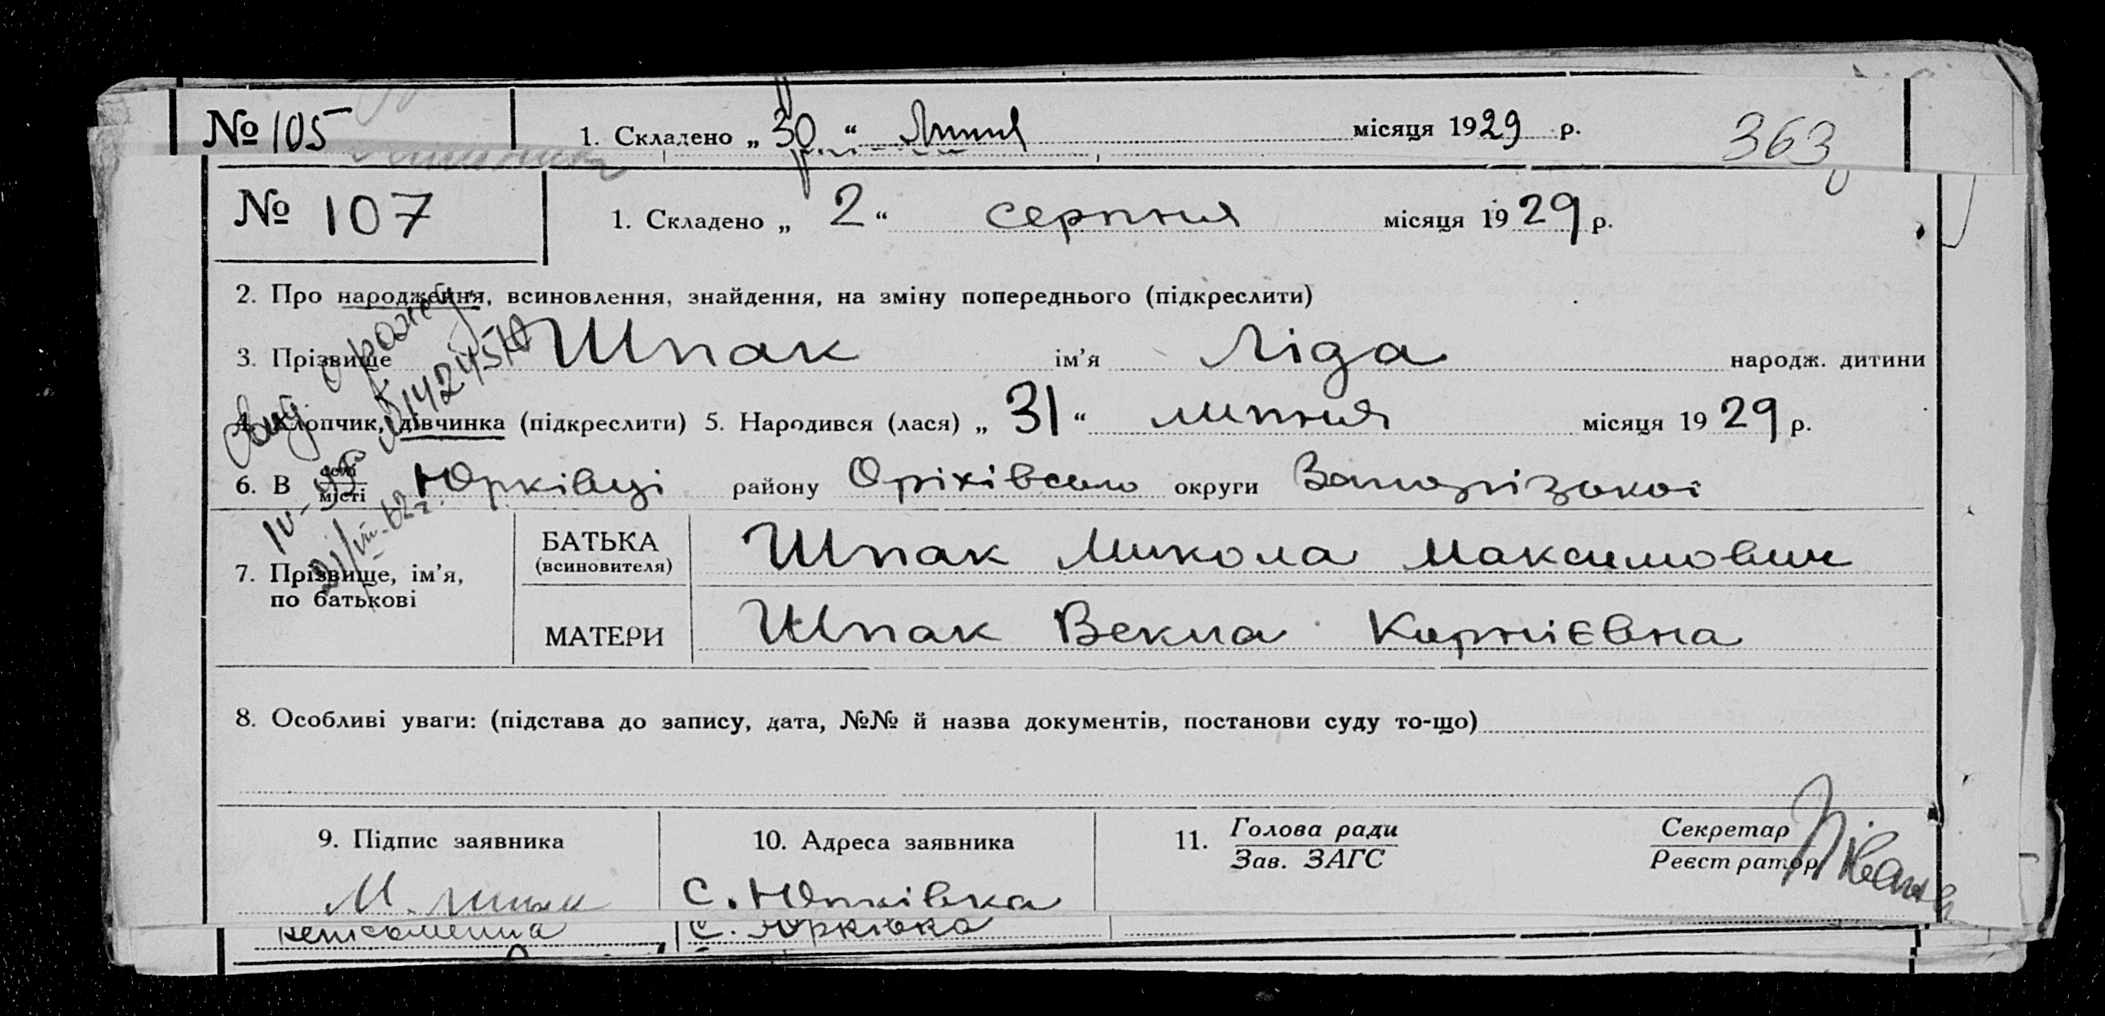 № 105 1. Складено „ 30 “ Липня місяця 1929 р. 363
№ 107 1. Складено „ 2 “ серпня місяця 1929 р.
2. Про народження, всиновлення, знайдення, на зміну попереднього (підкреслити)
3. Прізвище Шпак ім’я Ліда народж. дитини
4. Хлопчик, дівчинка (підкреслити) 5. Народився (лася) „ 31 “ липня місяця 1929 р.
6. В селі місті Юрківці району Оріхівсько округи Запорізької
7. Прізвище, ім’я, по батькові
БАТЬКА (всиновителя) Шпак Микола Максимович
МАТЕРИ Шпак Векла Карнієвна
8. Особливі уваги: (підстава до запису, дата, №№ й назва документів, постанови суду то-що)
9. Підпис заявника 10. Адреса заявника 11. Голова ради Зав. ЗАГС Секретар Реєстратор
М. Шпак С. Юрківка
неписьменна С. Юрківка